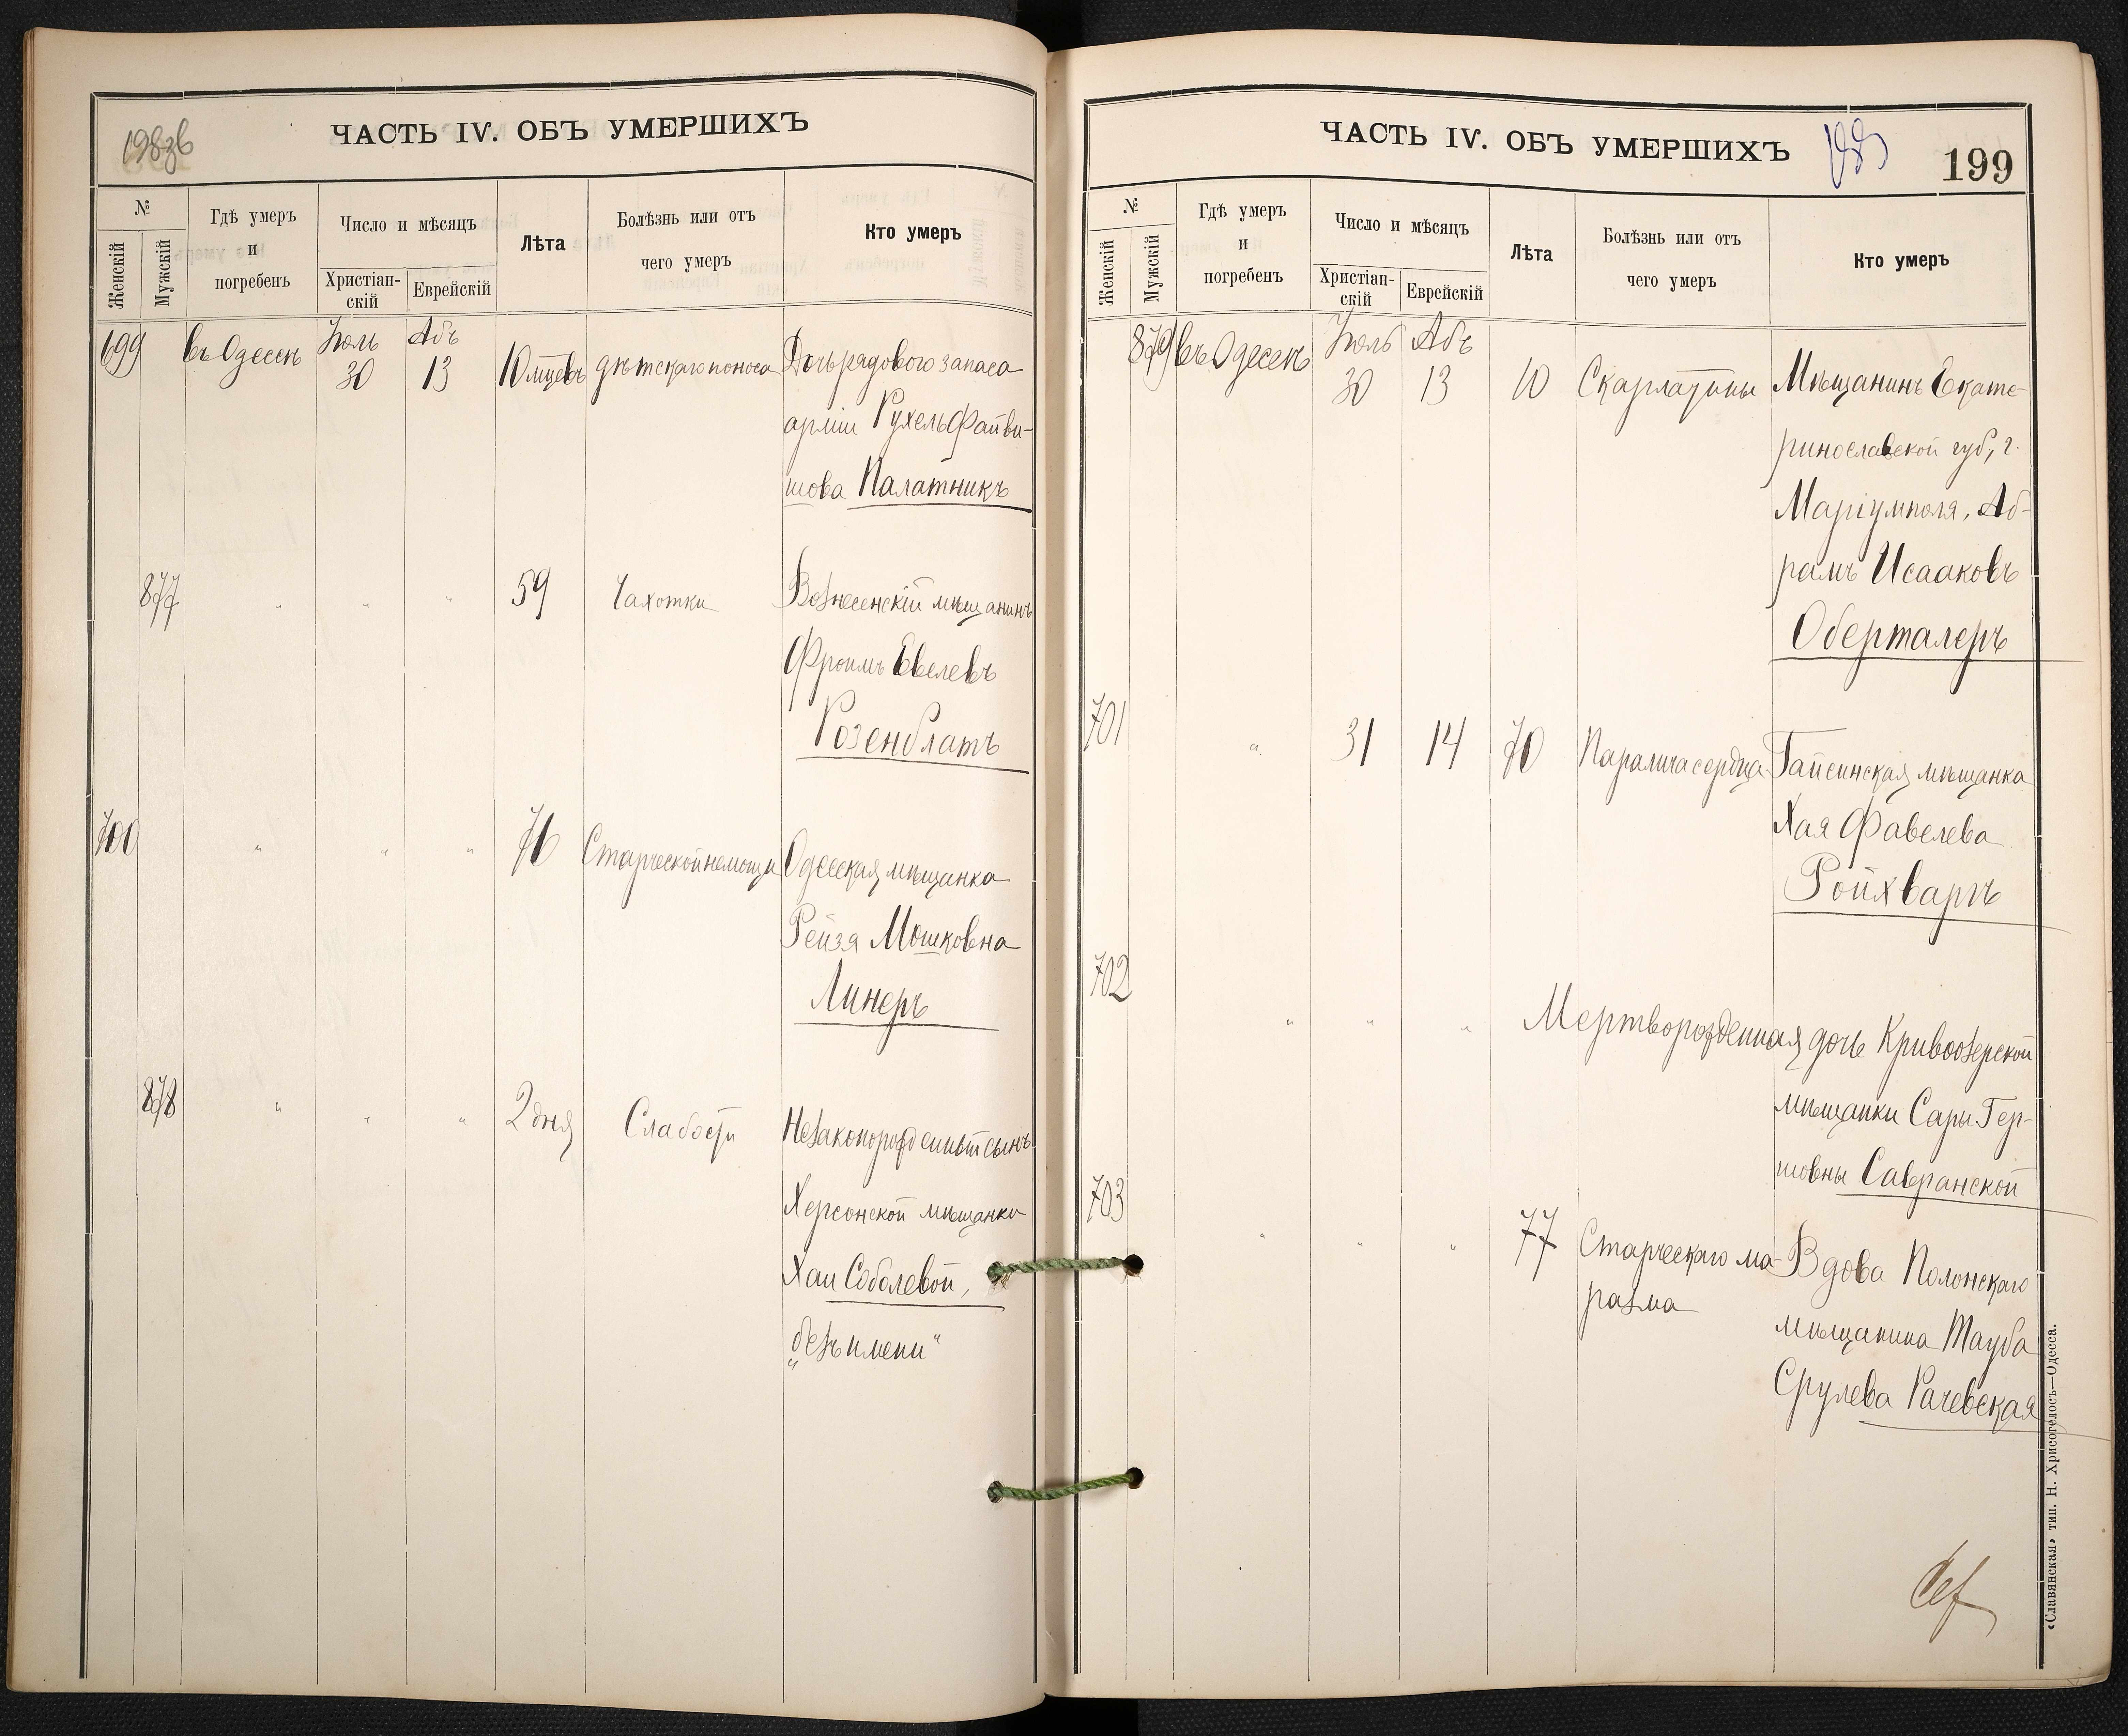 198об
ЧАСТЬ IV. ОБЪ УМЕРШИХЪ
№
Женскій
Мужскій
Гдѣ умеръ
и
погребенъ
Число и мѣсяцъ
Христіан-
скій
Еврейскій
Лѣта
Болѣзнь или отъ
чего умеръ
Кто умеръ
699 въ Одессѣ Іюль 30 Абъ 13 10 мцевъ дѣтскаго поноса Дочь рядового запаса
арміи Рухель Файви-
шова Палатникъ
877 " " " 59 Чахотки Вознесенскій мѣщанинъ
Фроимъ Евелевъ
Розенблатъ
700 " " " 76 Старческой немощи Одесская мѣщанка
Рейзя Мошковна
Линеръ
878 " " " 2 дня Слабости Незаконорожденный сынъ
Херсонской мѣщанки
Хаи Соболевой,
"безъ имени"
ЧАСТЬ IV. ОБЪ УМЕРШИХЪ
199
№
Женскій
Мужскій
Гдѣ умеръ
и
погребенъ
Число и мѣсяцъ
Христіан-
скій
Еврейскій
Лѣта
Болѣзнь или отъ
чего умеръ
Кто умеръ
879 въ Одессѣ Іюль 30 Абъ 13 10 Скарлатины Мѣщанинъ Екате-
ринославской губ, г.
Маріумполя, Аб-
рамъ Исааковъ
Оберталеръ
701 " 31 14 70 Паралича сердца Гайсинская мѣщанка
Хая Фавелева
Ройхваргъ
702 " " " Мертворожденная дочь Кривоозерской
мѣщанки Сары Гер-
шовны Савранской
703 " " " 77 Старческаго ма-
разма Вдова Полонскаго
мѣщанина Тауба
Срулева Рачевская
«Славянская» тип. Н. Хрисогелосъ—Одесса.